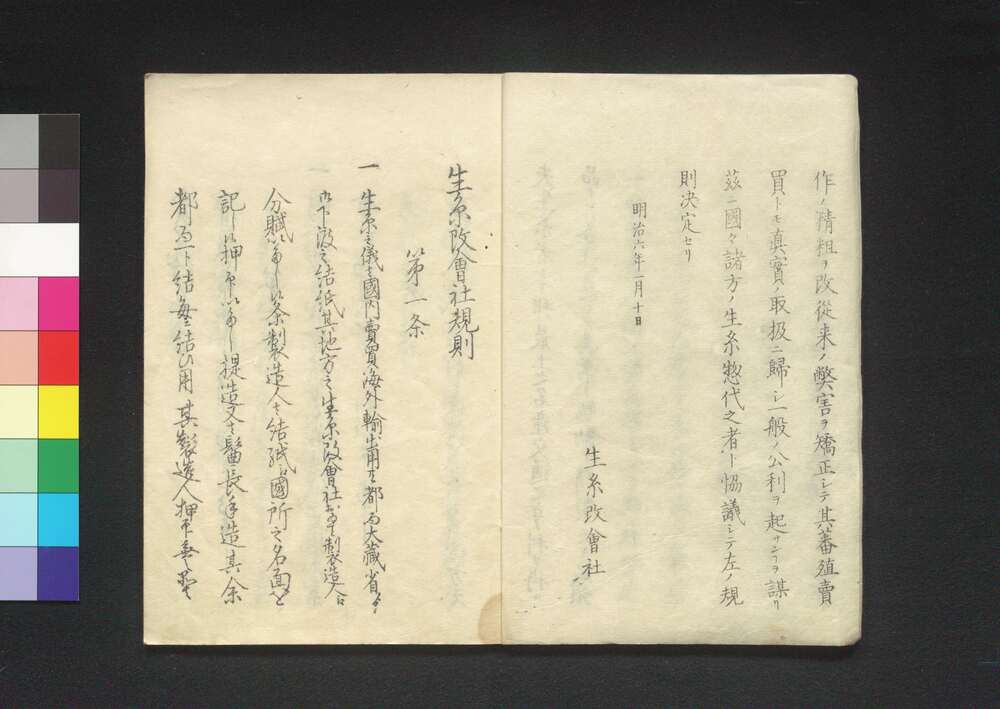 作ノ精粗ヲ改從来ノ弊害ヲ矯正シテ其蕃殖賣
買トモ真實ノ取扱ニ歸シ一般ノ公利ヲ起サンヿヲ謀リ
茲ニ國々諸方ノ生糸惣代之者ト協議シテ左ノ規
則決定セリ
明治六年一月十日
生糸改會社
生糸改會社規則
第一条
一 生糸之儀者國内賣買海外輸出用共都而大蔵省ゟ
御下渡之結紙其地方之生糸改會社おゐて製造人江
分賦いたし候条製造人者結紙江國所之名面を
記し候押印いたし提造又者鬢長手造其余
都而一ト結毎ニ結ひ用其製造人押印無之